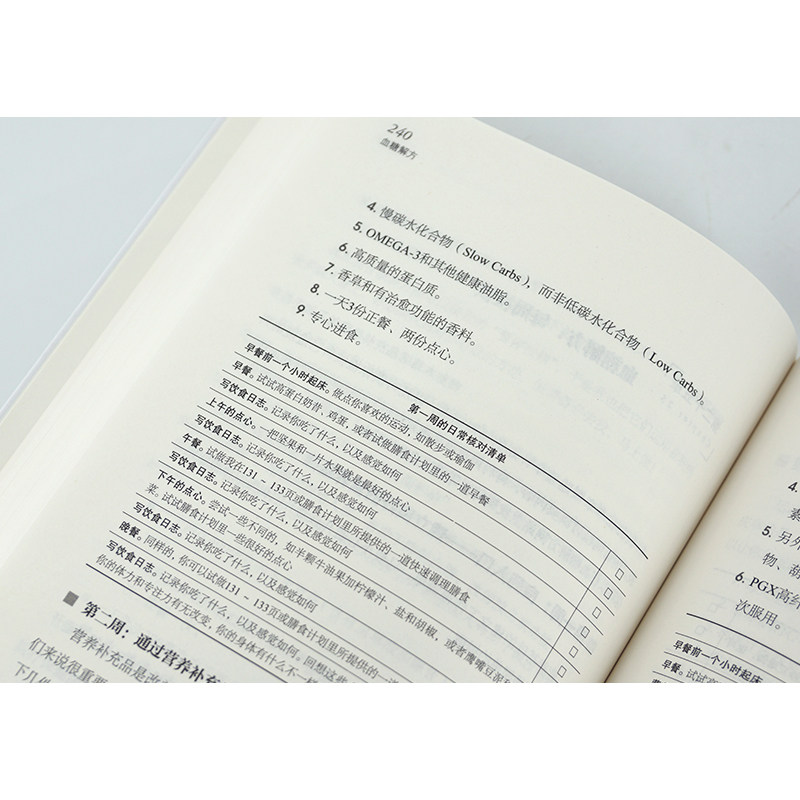 240
血糖解方
4. 慢碳水化合物（Slow Carbs），而非低碳水化合物（Low Carbs）。
5. OMEGA-3和其他健康油脂。
6. 高质量的蛋白质。
7. 香草和有治愈功能的香料。
8. 一天3份正餐、两份点心。
9. 专心进食。
第一周的日常核对清单
早餐前一个小时起床。做点你喜欢的运动，如散步或瑜伽
早餐。试试高蛋白奶昔、鸡蛋，或者试做膳食计划里的一道早餐
写饮食日志。记录你吃了什么，以及感觉如何
上午的点心。一把坚果和一片水果就是最好的点心
写饮食日志。记录你吃了什么，以及感觉如何
午餐。试做我在131～133页或膳食计划里所提供的一道快速调理膳食
写饮食日志。记录你吃了什么，以及感觉如何
下午的点心。尝试一些不同的，如半颗牛油果加柠檬汁、盐和胡椒，或者鹰嘴豆泥和
菜。试试膳食计划里一些很好的点心
写饮食日志。记录你吃了什么，以及感觉如何
晚餐。同样的，你可以试做131～133页或膳食计划里所提供的一道
写饮食日志。记录你吃了什么，以及感觉如何。回想这些
你的体力和专注力有无改变，你的身体有什么不一样
■ 第二周：通过营养补充
营养补充品是改
们来说很重要
下几
4.
素
5. 另外
物、葫
6. PGX高纤
次服用。
早餐前一个小时起床
早餐。试试高